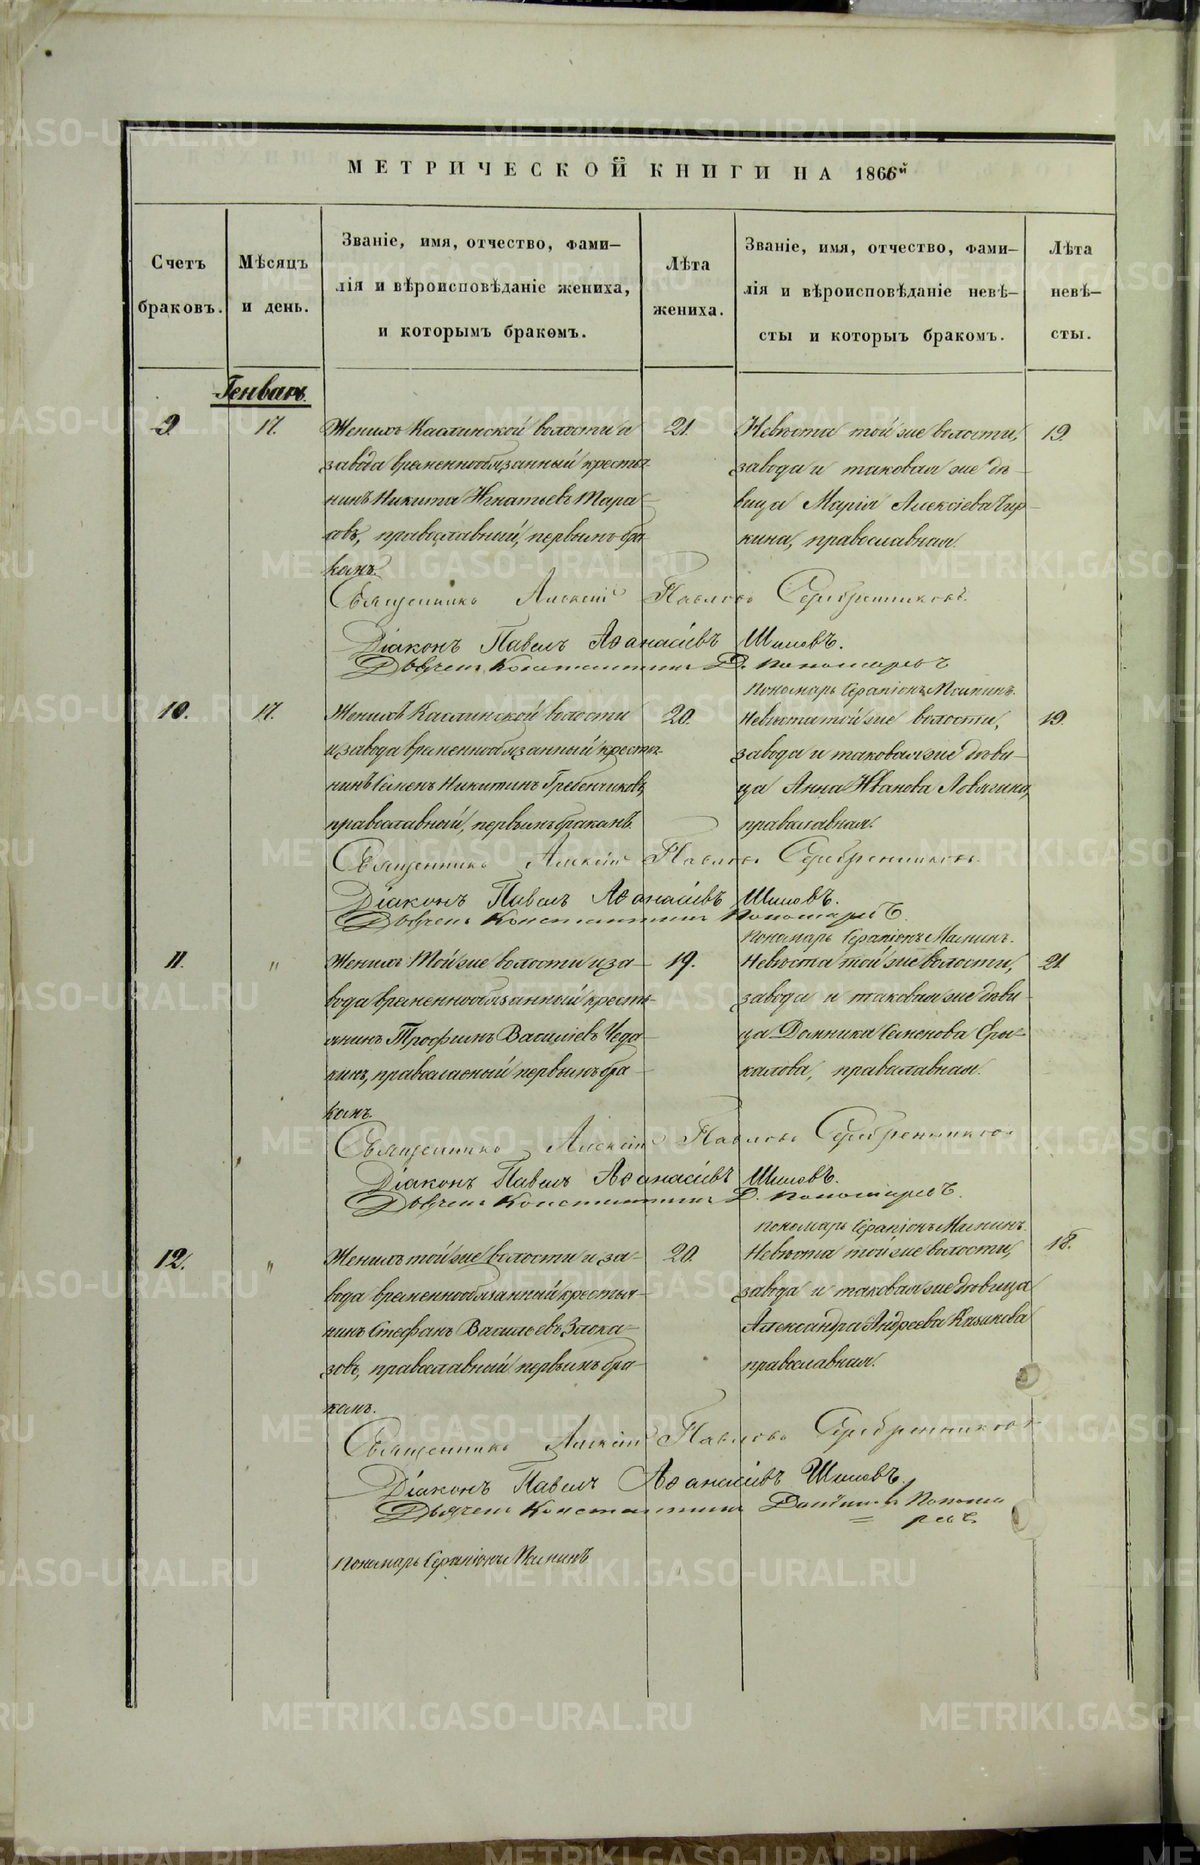 МЕТРИЧЕСКОЙ КНИГИ НА 1866й
Счетъ браковъ.
Мѣсяцъ и день.
Званіе, имя, отчество, фами-
лія и вѣроисповѣданіе жениха,
и которымъ бракомъ.
Лѣта жениха.
Званіе, имя, отчество, фами-
лія и вѣроисповѣданіе невѣ-
сты и которыъ бракомъ.
Лѣта невѣ-
сты.
Генварь.
9. 17.
Женихъ Каслинской волости и
завода временнообязанный кресть-
нинъ Никита Игнатьевъ Тара-
совъ, православный, первымъ бра-
комъ.
21.
Невѣста той же волости,
завода и таковая же дѣ-
вица Марія Алексіева Чир-
кина, православная.
19.
Священникъ Алексій Павловъ Серебренниковъ.
Діаконъ Павелъ Аѳанасіевъ Шиловъ.
Дьячекъ Константинъ Д. Пономаревъ
Пономарь Серапіонъ Мамин.
10. 17.
Женихъ Каслинской волости
и завода временнообязанный кресть-
нинъ Семенъ Никитинъ Гребенчиковъ,
православный, первымъ бракомъ.
20.
Невѣста той же волости,
завода и таковая же дѣви-
ца Анна Иванова Ловягина,
православная.
19.
Священникъ Алексій Павловъ Серебренниковъ.
Діаконъ Павелъ Аѳанасіевъ Шиловъ.
Дьячекъ Константинъ Пономаревъ.
Пономарь Серапіонъ Маминъ.
11. "
Женихъ Той же волости и за-
вода временнообязанный кресть-
янинъ Трофимъ Василіевъ Чеда-
кинъ, православный первымъ бра-
комъ.
19.
Невѣста той же волости,
завода и таковая же дѣви-
ца Домника Семенова Еры-
калова, православная.
21.
Священникъ Алексій Павловъ Серебренниковъ
Діаконъ Павелъ Аѳанасіевъ Шиловъ.
Дьячекъ Константинъ Д. Пономаревъ.
Пономарь Серапіонъ Маминъ.
12. "
Женихъ той же волости и за-
вода временнообязанный крестья-
нинъ Стефанъ Васильевъ Заока-
зовъ, православный первымъ бра-
комъ.
20.
Невѣста той же волости,
завода и таковая же дѣвица
Александра Андреева Казакова
православная.
18.
Священникъ Алексій Павловъ Серебренниковъ
Діаконъ Павелъ Аѳанасіевъ Шиловъ.
Дьячекъ Константинъ Понома
ревъ.
Пономарь Серапіонъ Маминъ
METRIKI.GASO-URAL.RU